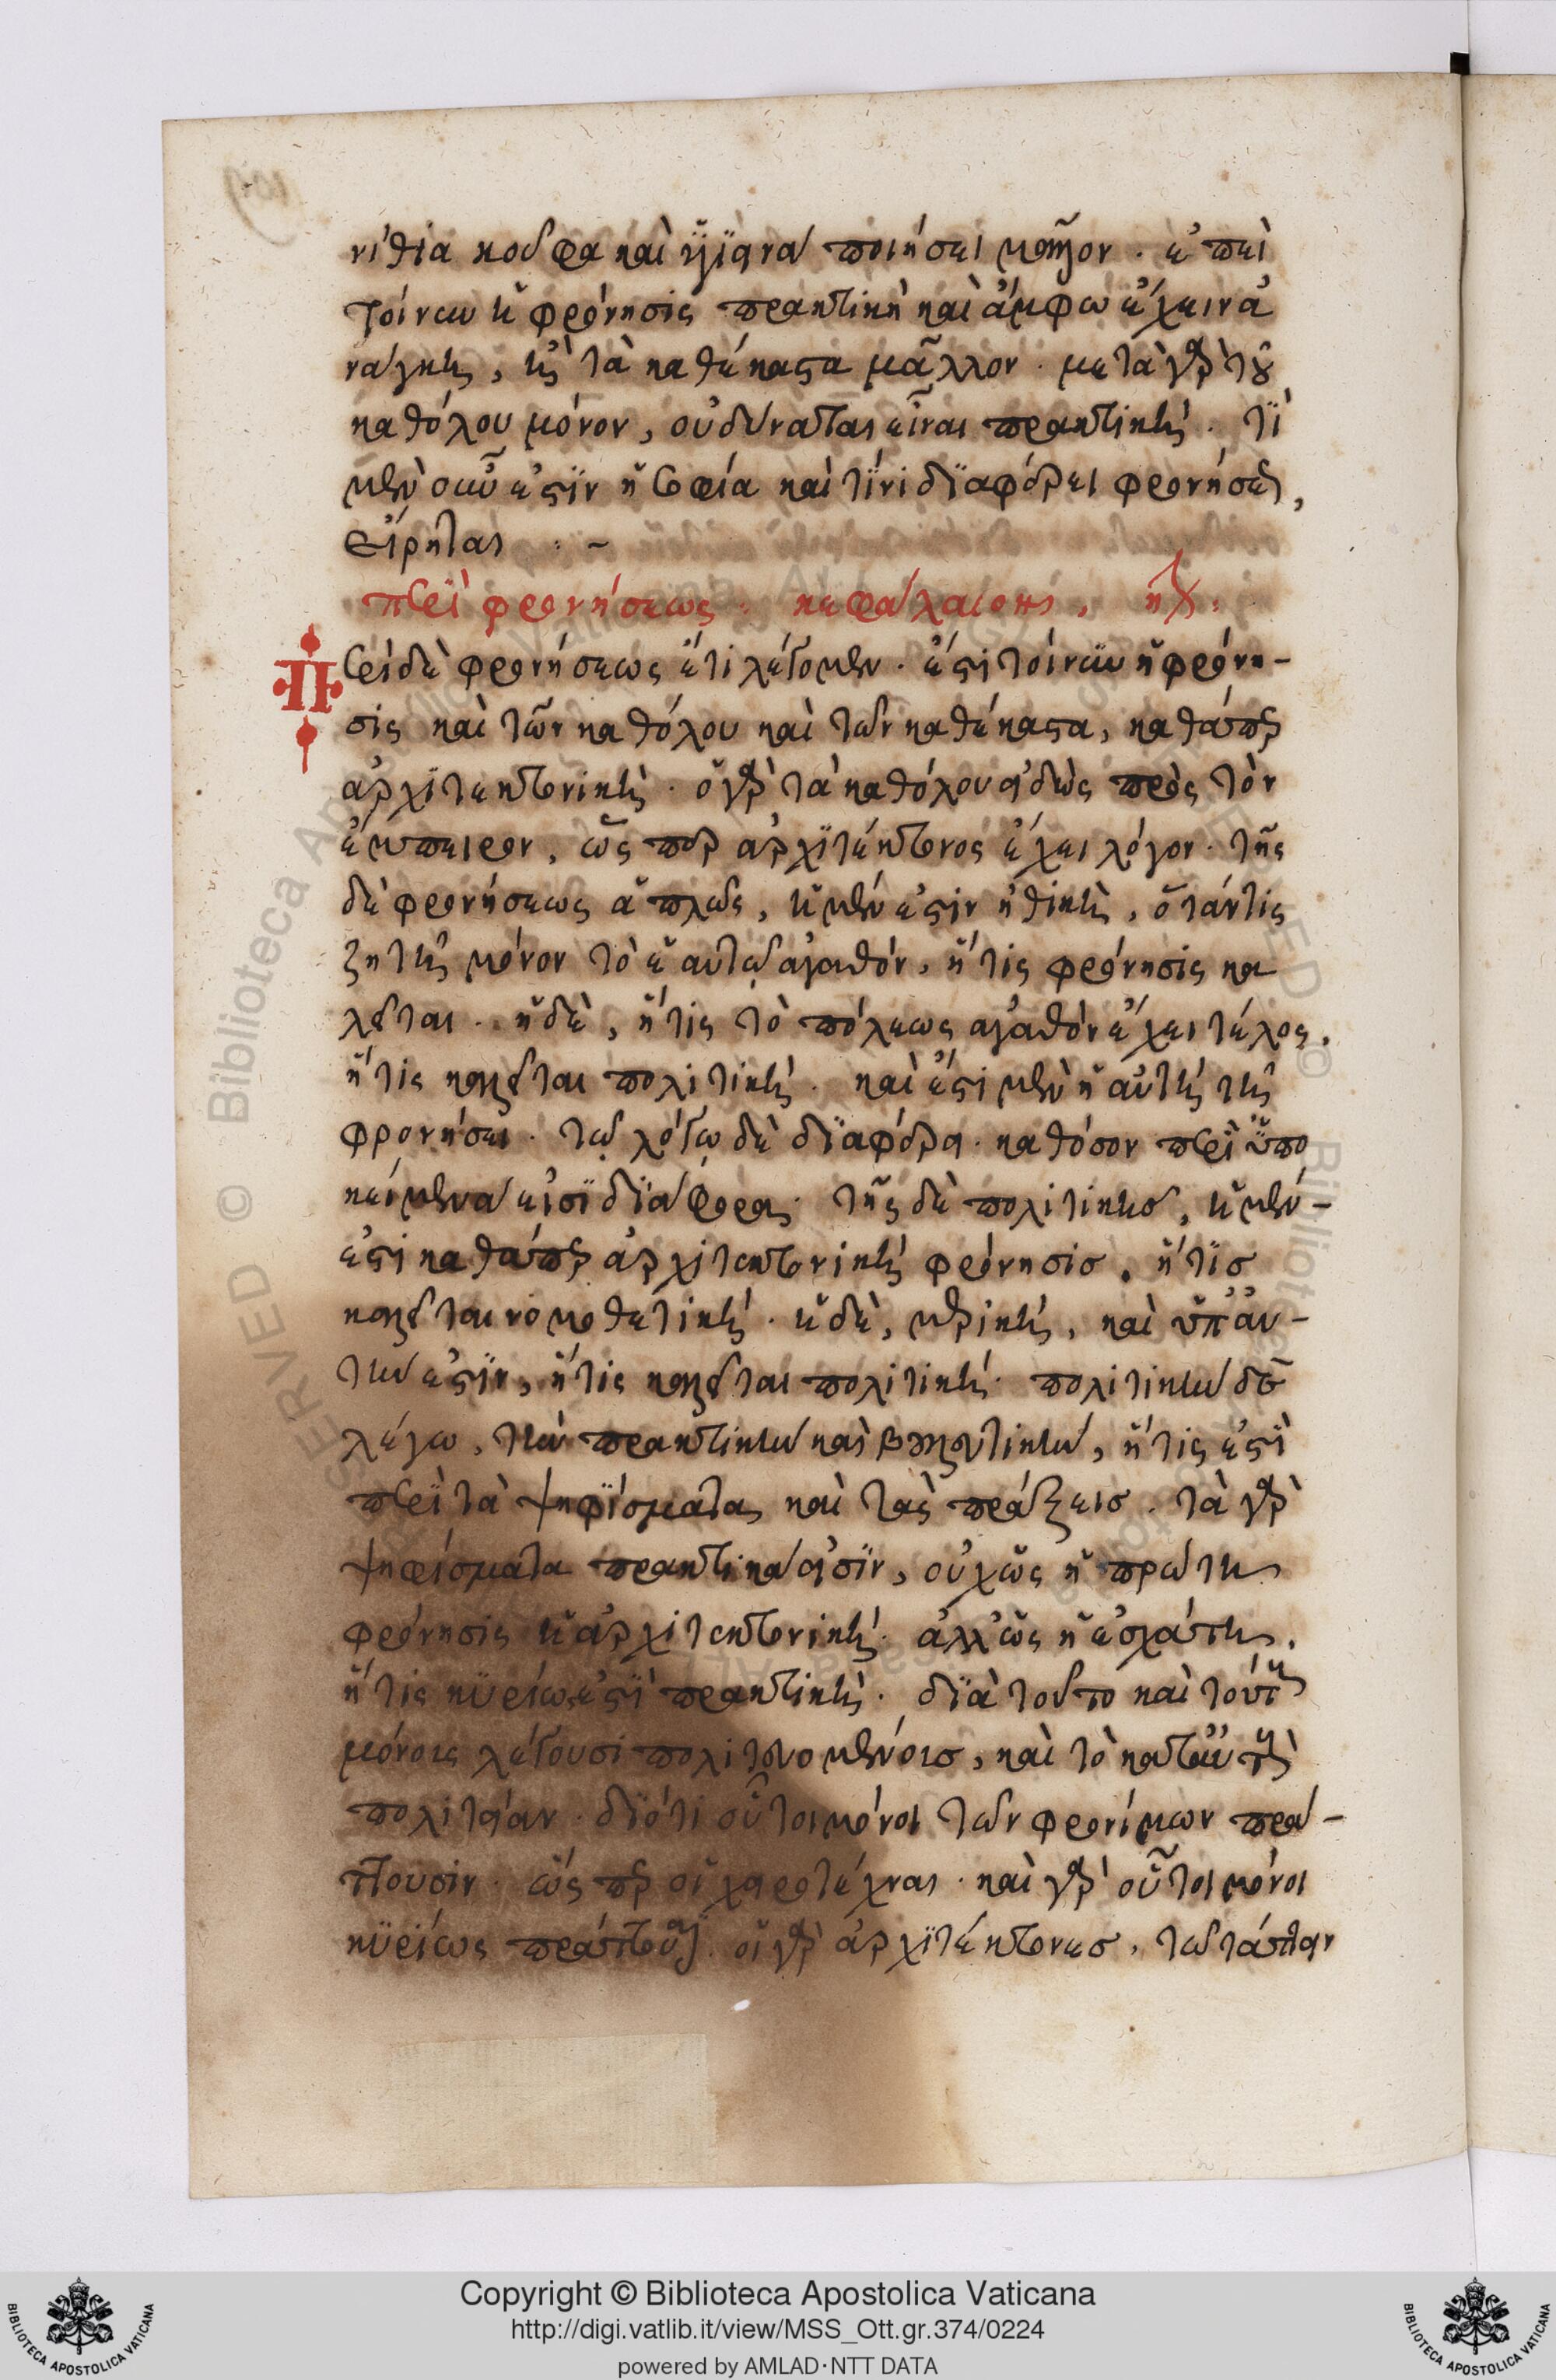 νίθια κοῦφα καὶ ὑγιεινὰ ποιήσει μᾶλλον · ἐπεὶ
τοίνυν ἡ φρόνησις πρακτικὴ καὶ ἄμφω ἔχειν ἀ
νάγκη, ἢ τὰ καθέκαστα μᾶλλον · μετὰ γὰρ τοῦ
καθόλου μόνον, οὐ δύναται εἶναι πρακτική · τί
μὲν οὖν ἐστὶν ἡ σοφία καὶ τίνι διαφέρει φρονήσεως,
εἴρηται · ~
περὶ φρονήσεως · κεφάλαιον, η̅ον ·
Περὶ δὲ φρονήσεως ἔτι λέγομεν · ἔστι τοίνυν ἡ φρόνη-
σις καὶ τῶν καθόλου καὶ τῶν καθέκαστα, καθάπερ
ἀρχιτεκτονική · ὁ γὰρ τὰ καθόλου εἰδὼς πρὸς τὸν
ἔμπειρον, ὥσπερ ἀρχιτέκτονος ἔχει λόγον · τῆς
δὲ φρονήσεως ἁπλῶς, ἡ μέν ἐστιν ἠθικὴ, ὅτάν τις
ζητῇ μόνον τὸ ἑαυτῷ ἀγαθόν, ἥτις φρόνησις κα
λεῖται · ἡ δὲ, ἥτις τὸ πόλεως ἀγαθὸν ἔχει τέλος,
ἥτις καλεῖται πολιτική · καὶ ἔστι μὲν ἡ αὐτὴ τῇ
φρονήσει · τῷ λόγῳ δὲ διαφέρει · καθόσον περὶ ὑπο
κείμενα εἰσὶ διάφορα · τῆς δὲ πολιτικῆς, ἡ μέν-
ἐστι καθάπερ ἀρχιτεκτονικὴ φρόνησις, ἥτις
καλεῖται νομοθετική · ἡ δὲ, μερικὴ, καὶ ὑπ' αὐ-
τὴν ἐστὶν, ἥτις καλεῖται πολιτική · πολιτικὴν δὲ
λέγω, τὴν πρακτικὴν καὶ βουλευτικὴν, ἥτις ἐστὶ
περὶ τὰ ψηφίσματα καὶ τὰς πράξεις · τὰ γὰρ
ψηφίσματα πρακτικὰ εἰσὶν, οὐχ ὡς ἡ πρώτη
φρόνησις ἡ ἀρχιτεκτονική · ἀλλ' ὡς ἡ ἐσχάτη,
ἥτις κυρίως ἐστὶ πρακτική · διὰ τοῦτο καὶ τούτους
μόνους λέγουσι πολιτευομένοις, καὶ τὸ κατ' αὐτοὺς
πολιτείαν · διότι οὗτοι μόνοι τῶν φρονίμων πρά-
ττουσιν · ὥσπερ οἱ χειροτέχναι · καὶ γὰρ οὗτοι μόνοι
κυρίως πράττουσι · οἱ γὰρ ἀρχιτέκτονες, τῷ τάττειν
Copyright © Biblioteca Apostolica Vaticana
http://digi.vatlib.it/view/MSS_Ott.gr.374/0224
powered by AMLAD·NTT DATA
BIBLIOTECA APOSTOLICA VATICANA
BIBLIOTECA APOSTOLICA VATICANA